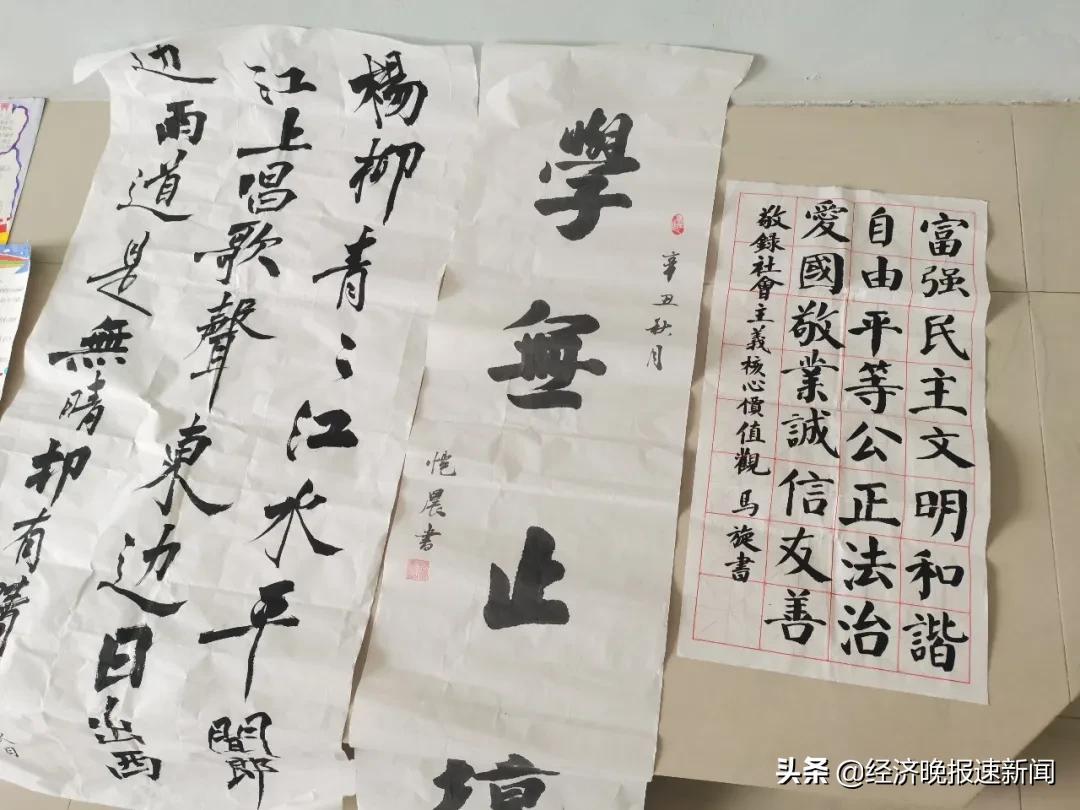 楊柳青〻江水平聞郎
江上唱歌聲東边日出西
边雨道是無晴却有
辛丑秋月
學無止境
恺晨書
富强民主文明和諧
自由平等公正法治
愛國敬業誠信友善
敬録社會主義核心價值觀 馬旋書
头条 @经济晚报速新闻